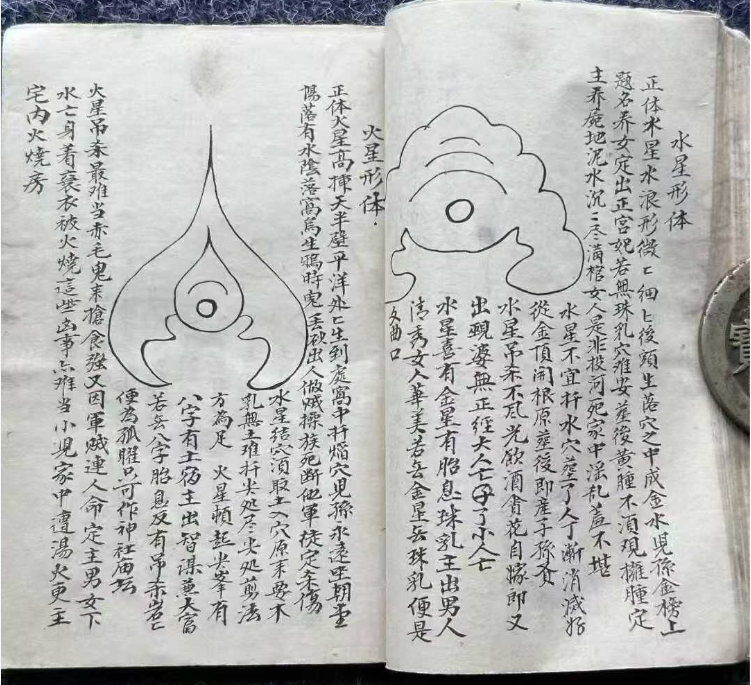 水星形体
正体水星水浪形微〻细〻後頭生落穴之中成金水児孫金榜上
題名养女定出正宫妃若無珠乳穴难安塟後黄腫不須覌擁腫定
主养屍地泥水沉〻尽满棺女人是非投河死家中滛乱羞不堪
水星不宜扦水穴塟了人丁漸消滅好
從金頂開根原塟後即産子孫賢
水星吊柔不风光飲酒貪花自嫁郎又
出覡婆無正經大人亡了小人亡
水星喜有金星有胎息珠乳主出男人
清秀女人華美若无金星无珠乳便是
文曲口
火星形体
正体火星高揷天半壁平洋处〻生到處窩中扦焰穴児孫永遠坐朝堂
陽落有水陰落窩為生鴉時
出人做贼操族死断他軍徒定柔傷
水星结穴須取土入穴原来要木
乳無土难扦尖处尽尖处剪法
方為足 火星頓起尖峯有
八字有土宿主出智谋兼大富
若无八字胎息反有吊柔岩〻
便為孤曜只可作神社庙坛
火星吊柔最难当赤毛鬼来搶食強又因軍贼連人命定主男女下
水亡身着蓑衣被火燒這些凶事亦难当小児家中遭湯火更主
宅内火燒房
寳